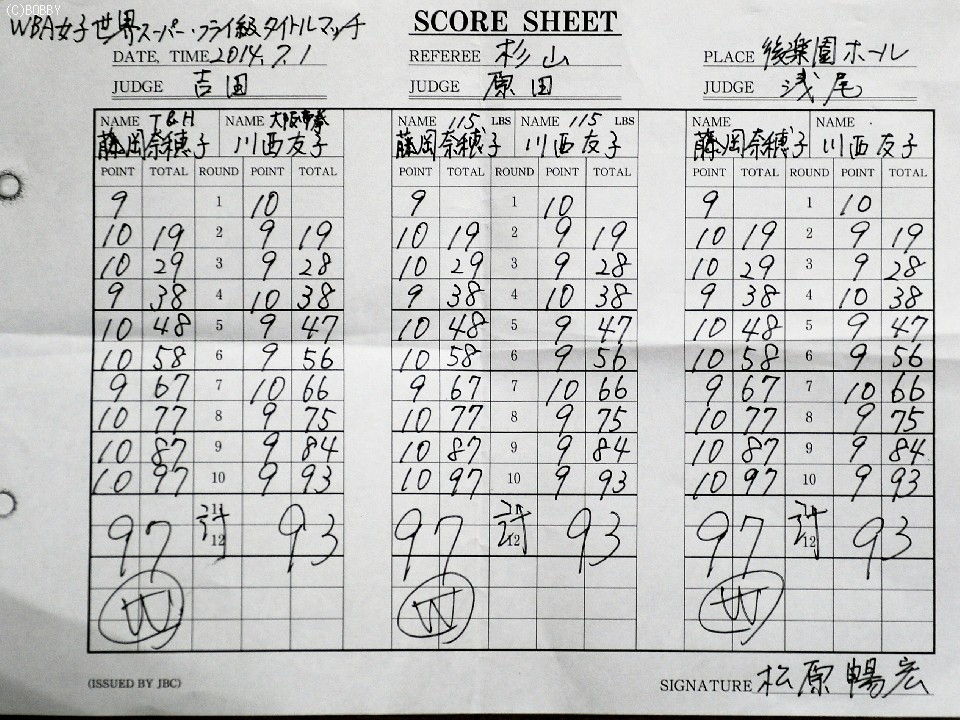 (C)BOBBY
WBA女子世界スーパー・フライ級タイトルマッチ
SCORE SHEET
DATE, TIME 2014.7.1 REFEREE 杉山 PLACE 後楽園ホール
JUDGE 吉田 JUDGE 原田 JUDGE 浅尾
NAME T&H NAME 大阪帝拳 NAME 115 LBS NAME 115 LBS NAME NAME
藤岡奈穂子 川西友子 藤岡奈穂子 川西友子 藤岡奈穂子 川西友子
POINT TOTAL ROUND POINT TOTAL POINT TOTAL ROUND POINT TOTAL POINT TOTAL ROUND POINT TOTAL
9 1 10 9 1 10 9 1 10
10 19 2 9 19 10 19 2 9 19 10 19 2 9 19
10 29 3 9 28 10 29 3 9 28 10 29 3 9 28
9 38 4 10 38 9 38 4 10 38 9 38 4 10 38
10 48 5 9 47 10 48 5 9 47 10 48 5 9 47
10 58 6 9 56 10 58 6 9 56 10 58 6 9 56
9 67 7 10 66 9 67 7 10 66 9 67 7 10 66
10 77 8 9 75 10 77 8 9 75 10 77 8 9 75
10 87 9 9 84 10 87 9 9 84 10 87 9 9 84
10 97 10 9 93 10 97 10 9 93 10 97 10 9 93
97 計 93 97 計 93 97 計 93
12 12 12
W W W
(ISSUED BY JBC) SIGNATURE 松原暢宏